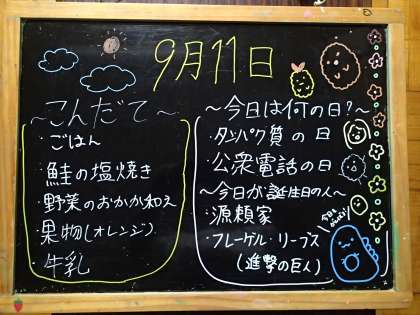 9月11日
～こんだて～
・ごはん
・鮭の塩焼き
・野菜のおかか和え
・果物(オレンジ)
・牛乳
～今日は何の日?～
・タンパク質の日
・公衆電話の日
～今日が誕生日の人～
・源頼家
・フレーゲル・リーブス
(進撃の巨人)